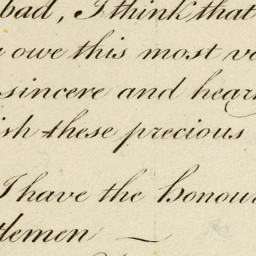 bad, I think that
owe this most va
sincere and hear
ish these precious
I have the Honou
tlemen —